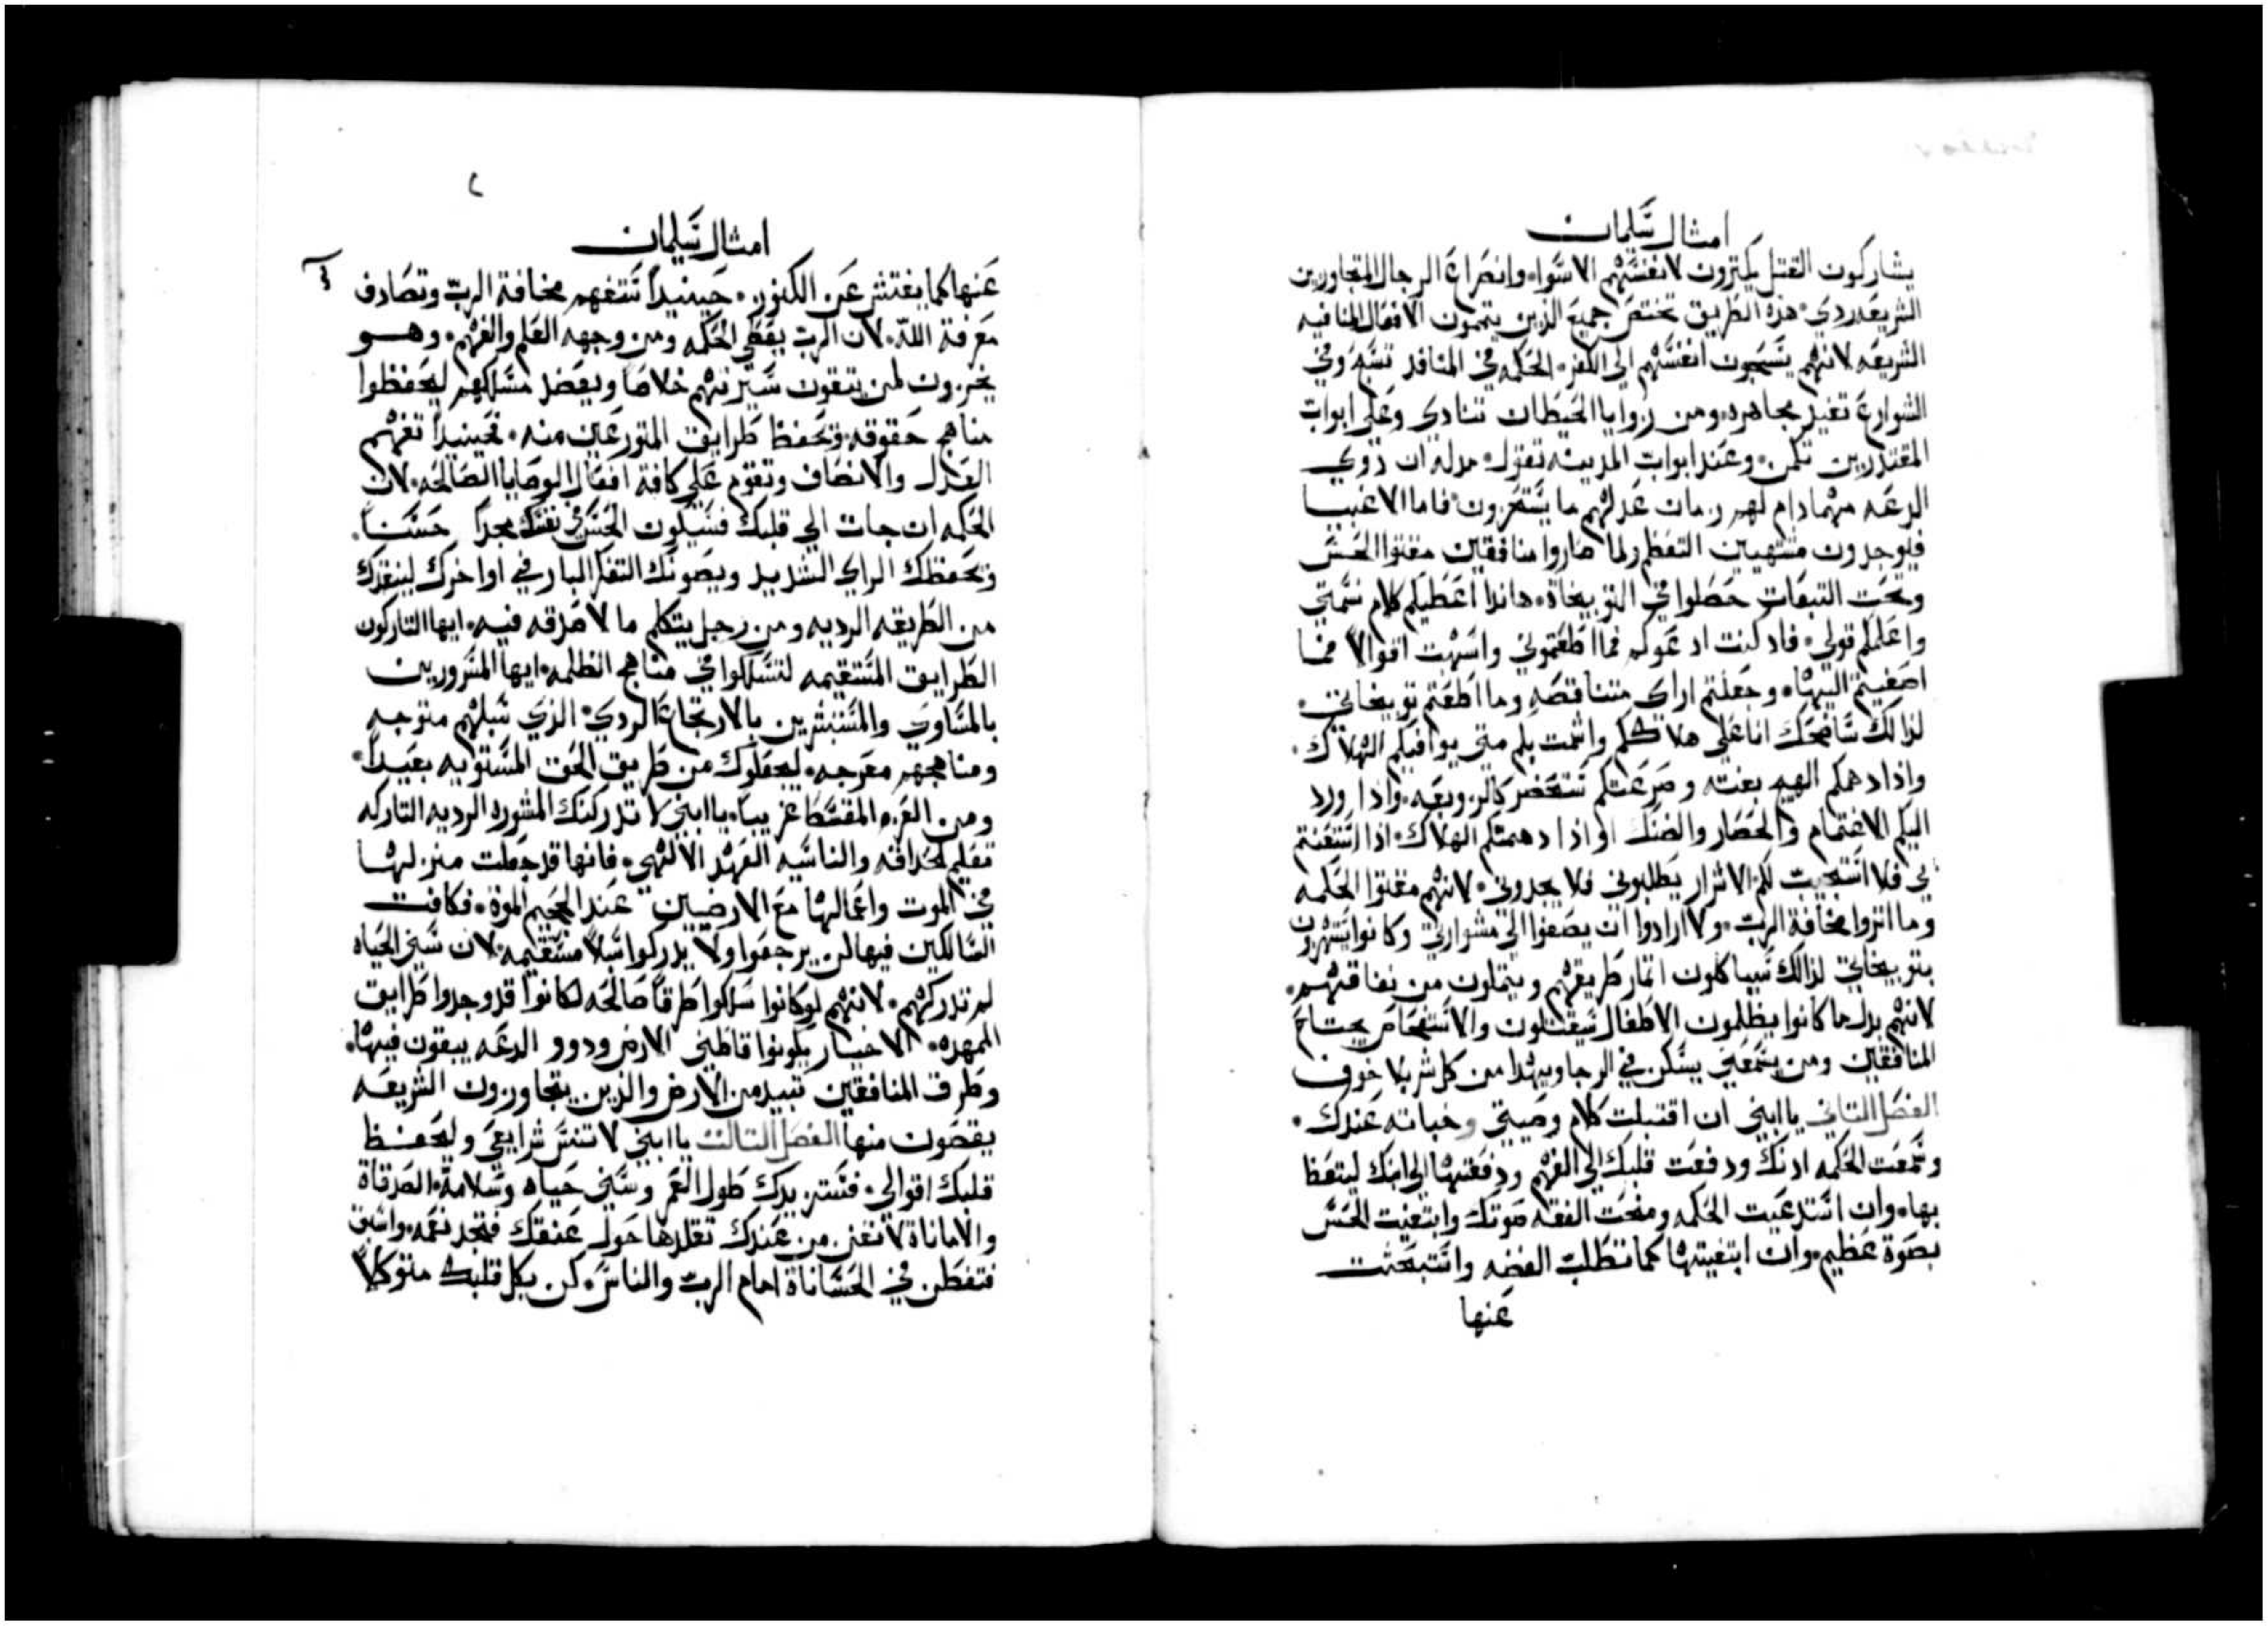 امثال سليمان
يشاركون القتل يكتزون لانفسهم الاسوا وانصراع الرجال المتجاوزين
الشريعه ردي هذه الطريق تختص جميع الذين يتممون الافعال المنافيه
الشريعه لانهم يسحبون انفسهم الي الكفر الحكمه في المنافد تسبّه وفي
الشوارع تعتبر مجاهره ومن زوايا الحيطان تنادي وعلي ابواب
المقتدرين تكمن وعند ابواب المدينه تقول مدله ان ذوي
الدعه مهما دام لهم زمان عدلهم ما يستخزون فاما الاغبيا
فيوجدون مشتهيين التعظم لما صاروا منافقين مقتوا الحس
وتحت التبعات حصلوا في التوبيخاة هاندا اعطيكم كلام نسمتي
واعلمكم قولي فاد كنت ادعوكم فما اطعتموني واسهبت اقوالاً فما
اصغيتم اليها وجعلتم اراي متناقصه وما اطعتم توبيخاتي
لذالك ساضحك انا علي هلاككم واشمت بكم متي يوافيكم الهلاك
واذا دهمكم الهيم بغته وصرعتكم ستحضر كالزوبعه واذا ورد
اليكم الاغتمام والحصار والضنك او اذا دهمتكم الهلاك اذا استغتم
بي فلا استجيب لكم الاشرار يطلبوني فلا يجدوني لانهم مقتوا الحكمه
وما اثروا مخافة الرب ولا ارادوا ان يصغوا الي مشوارتي وكانوا يستهزون
بتوبيخاتي لذالك سياكلون اتمار طريقهم ويتملون من نفاقهم
لانهم بدل ما كانوا يظلمون الاطفال سيقتلون والاستفحاص يجتاح
المنافقين ومن يسمعني يسكن في الرجا ويهدا من كل شر بلا خوف
الفصل التاني يا ابني ان اقتبلت كلام وصيتي وخباته عندك
وسمعت الحكمه ادنك ودفعت قلبك الي الفهم ودفعتها الي ابنك ليتعظ
بها وان استدعيت الحكمه ومنحت الفقه صوتك وابتغيت الحس
بصوة عظيم وان ابتغيتها كما تطلب الفضه واستبحثت
عنها
امثال سليمان
عنها كما يفتش عن الكنوز حينيداً ستفهم مخافة الرب وتصادف
معرفة الله لان الرب يعطي الحكمه ومن وجهه العلم والفهم وهو
يخزون لمن يتقون سيرتهم خلاصاً ويعضد مسالكهم ليحفظوا
مناهج حقوقه وتحفظ طرايق المتورعين منه فحينيداً تفهم
العدل والانصاف وتقوم علي كافة افعال الوصايا الصالحه لان
الحكمه ان جات الي قلبك فسيكون الحس في نفسك مجداً حسناً
وتحفظك الراي الشديد ويصونك التفكر البار في اواخرك لينقدك
من الطريقه الرديه ومن رجل يتكلم ما لا صدقه فيه ايها التاركون
الطرايق المستقيمه لتسلكوا في مناهج الظلمه ايها المسرورين
بالمساوي والمستبشرين بالارتجاع الردي الذي سبلهم متوجه
ومناهجهم معرجه ليجعلوك من طريق الحق المستويه بعيداً
ومن العزم المقسط غريباً يا ابني لا تدركنك المشوره الرديه التاركه
تعليم الحداقه والناسيه العهد الالهي فانها قد جعلت منزلها
في الموت واعمالها مع الارضيين عند الجحيم الموة فكافت
السالكين فيها لن يرجعوا ولا يدركوا سبلاً مستقيمه لان سني الحياه
لم تدركهم لانهم لو كانوا سلكوا طرقاً صالحه لكانوا قد وجدوا طرايق
الممهده الاخيار يكونوا قاطني الارض ودوو الدعه يبقون فيها
وطرق المنافقين تبيد من الارض والذين يتجاوزون الشريعه
يقصون منها الفصل التالت يا ابني لا تنس شرايعي وليحفظ
قلبك اقوالي فستزيدك طول العمر وسني حياه وسلامة الصدقاة
والاماناة لا تفنى من عندك تقلدها حول عنقك فتجد نعمه واسبق
فتفطن في الحساناة امام الرب والناس كن بكل قلبك متوكلاً